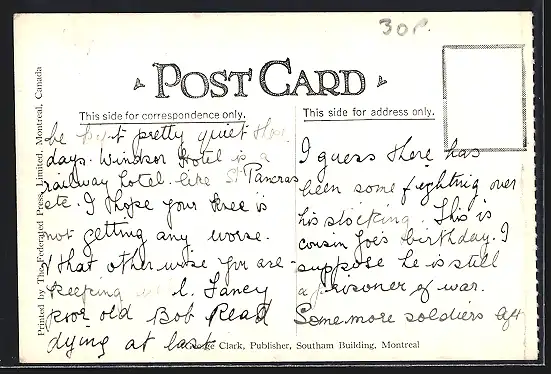 30P.
POST CARD
This side for correspondence only.
This side for address only.
be kept pretty quiet these
days. Windsor Hotel is a
railway hotel like St Pancras
etc. I hope your knee is
not getting any worse.
& that otherwise you are
keeping well. Fancy
poor old Bob Read
dying at last
I guess there has
been some fighting over
his stocking. This is
cousin Joe's birthday. I
suppose he is still
a prisoner of war.
Some more soldiers
Printed by The Federated Press, Limited, Montreal, Canada
George Clark, Publisher, Southam Building, Montreal